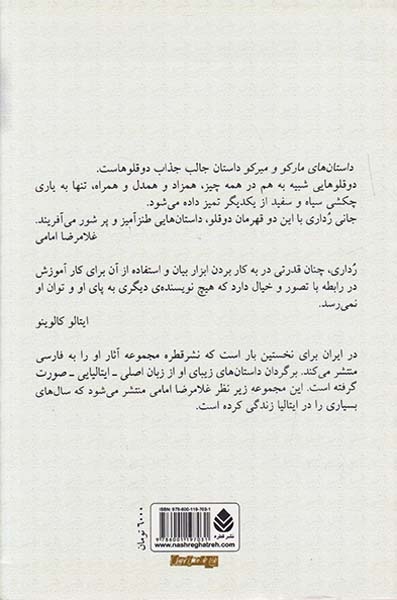 داستان‌های مارکو و میرکو داستان جالب جذاب دوقلوهاست.
دوقلوهایی شبیه به هم در همه چیز، همزاد و همدل و همراه، تنها به یاری
چکشی سیاه و سفید از یکدیگر تمیز داده می‌شود.
جانی رُداری با این دو قهرمان دوقلو، داستان‌هایی طنزآمیز و پر شور می‌آفریند.
غلامرضا امامی
رُداری، چنان قدرتی در به کار بردن ابزار بیان و استفاده از آن برای کار آموزش
در رابطه با تصور و خیال دارد که هیچ نویسنده‌ی دیگری به پای او و توان او
نمی‌رسد.
ایتالو کالوینو
در ایران برای نخستین بار است که نشرقطره مجموعه آثار او را به فارسی
منتشر می‌کند. برگردان داستان‌های زیبای او از زبان اصلی ـ ایتالیایی ـ صورت
گرفته است. این مجموعه زیر نظر غلامرضا امامی منتشر می‌شود که سال‌های
بسیاری را در ایتالیا زندگی کرده است.
۶۰۰۰ تومان
ISBN: 978-600-119-703-1
9786001197031
نشر قطره
www.nashreghatreh.com